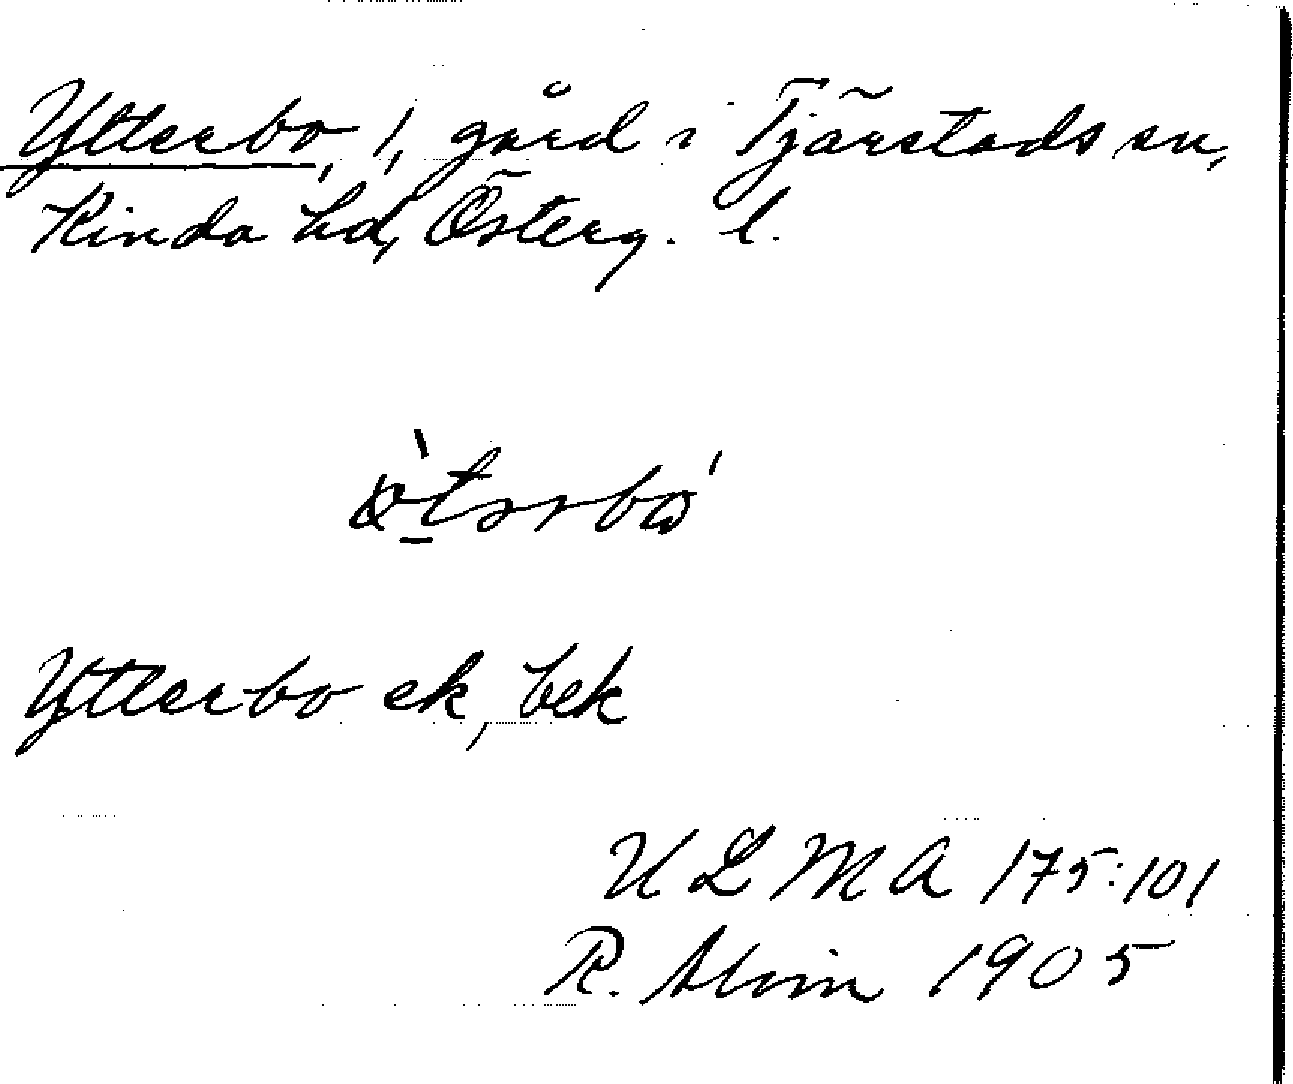 Ytterbo, 1, gård i Tjärstads sn,
Kinda hd, Österg. l.
Ytterbo ek, bek
ULMA 175:101
R. Alvin 1905